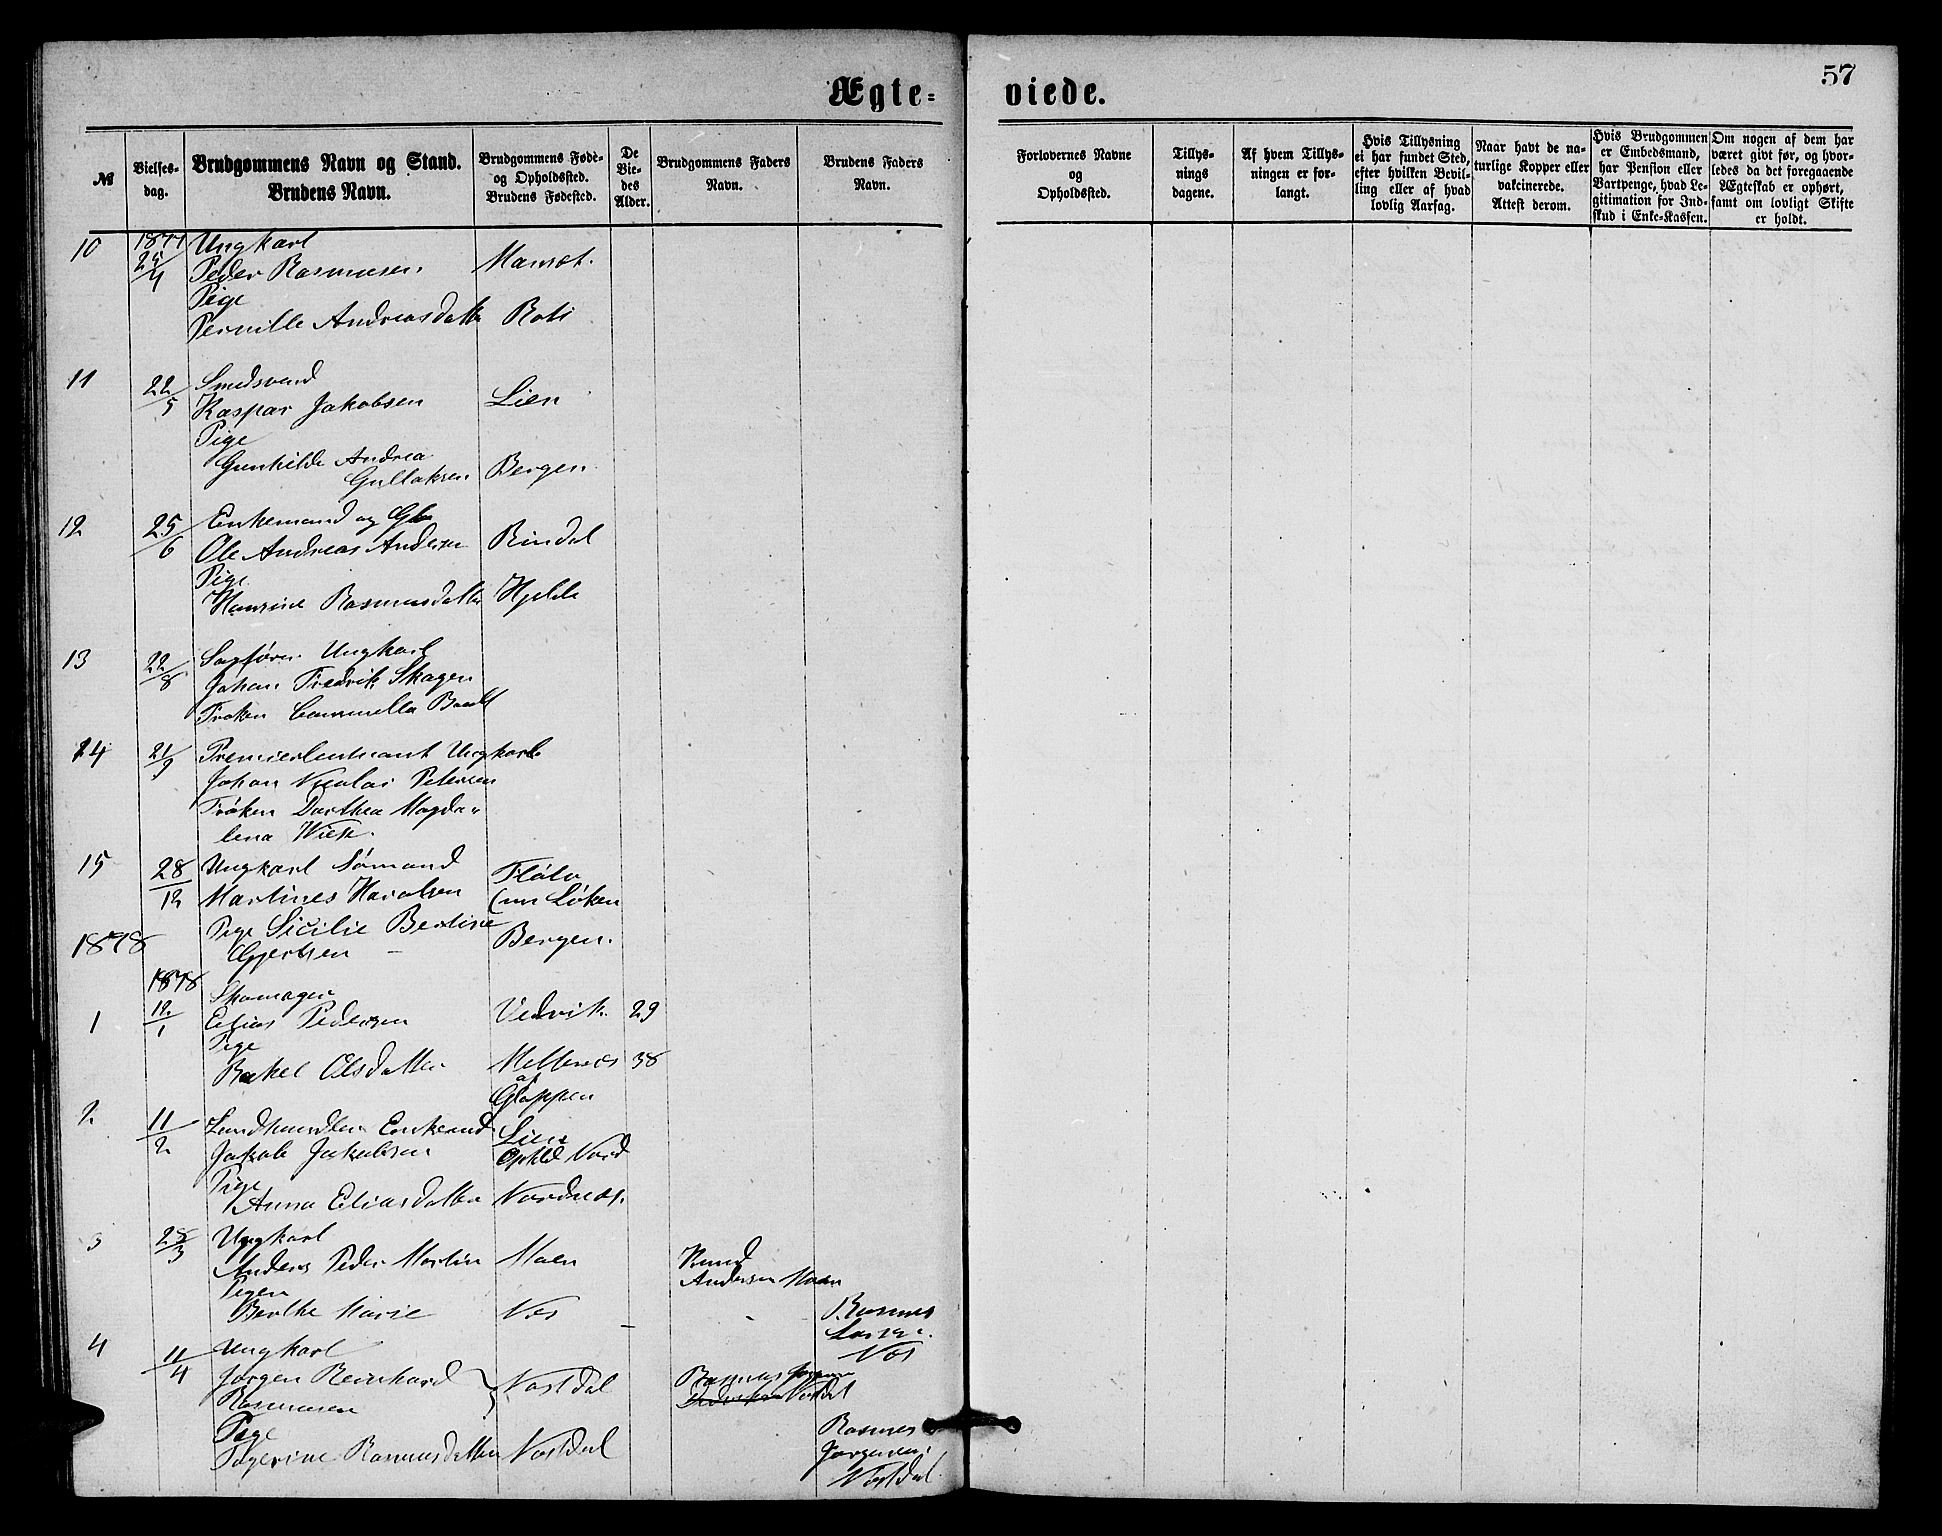 Ægte-
viede.
57
№
Vielses-
dag.
Brudgommens Navn og Stand.
Brudens Navn.
Brudgommens Føde-
og Opholdssted.
Brudens Fødested.
De
Vie-
des
Alder.
Brudgommens Faders
Navn.
Brudens Faders
Navn.
Forlovernes Navne
og
Opholdssted.
Tillys-
nings
dagene.
Af hvem Tillys-
ningen er for-
langt.
Hvis Tillysning
ei har fundet Sted,
efter hvilken Bevil-
ling eller af hvad
lovlig Aarsag.
Naar havt de na-
turlige Kopper eller
vakcinerede.
Attest derom.
Hvis Brudgommen
er Embedsmand,
har Pension eller
Vartpenge, hvad Le-
gitimation for Ind-
skud i Enke-Kassen.
Om nogen af dem har
været givt før, og hvor-
ledes da det foregaaende
Ægteskab er ophørt,
samt om lovligt Skifte
er holdt.
10 1877 Ungkarl
25/4 Peder Rasmusen
Pige
Pernille Andreasdatter
11 22/5 Smedsvend
Kaspar Jakobsen Lien
Pige
Gunhilde Andrea
Gullaksen Bergen
12 25/6 Enkemand og
Ole Andreas Andersen Rindal
Pige
Rasmusdatter Hjelle
13 22/8 Sagfører Ungkarl
Johan Fredrik Skagen
Frøken
14 21/9 Premierleutnant Ungkarl
Johan Nicolai Petersen
Frøken Dorthea Magda-
lena
15 28/12 Ungkarl Sømand
Martines
Løken
Pige Sicilie Bertine
Gjertsen Bergen.
1878
1878 Skomager
1 12/1 Elias Pedersen Vedvik 29
Pige
Rakel Olsdatter 38
af
Gloppen
2 11/2 Landhandler Enkemand Lien
Jakob Jakobsen
Pige
Anna Eliasdatter Nordnæs.
3 28/3 Ungkarl
Anders Peder Martin Maen Knud
Andersen Maen
Pigen
Berthe Marie Nes Rasmus
Nes
4 11/4 Ungkarl
Jørgen Reinhard Nostdal Rasmus
Rasmusen
Pige Rasmus
Rasmusdatter Nostdal Jørgensen
Nostdal